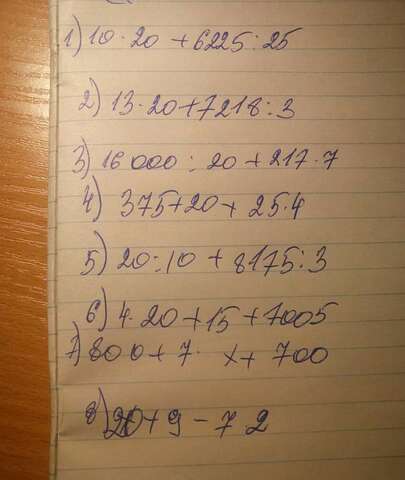 1) 10·20 + 6225:25
2) 13·20+7218:3
3) 16 000 : 20 + 217·7
4) 375+20+ 25·4
5) 20:10 + 8175:3
6) 4·20+15+7005
7) 800+7· x+ 700
8) 20+9-7 2